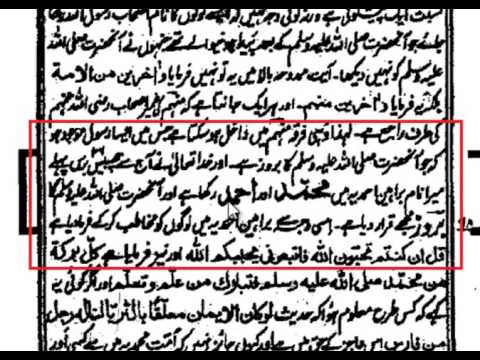 چاہئے جو آنحضرت صلی اللہ علیہ وسلم کے بعد پیدا ہونیوالے تھے جنہوں نے آنحضرت صلی اللہ
علیہ وسلم کو نہیں دیکھا۔ آیت ممدوحہ بالا میں یہ تو نہیں فرمایا وآخرین من الامۃ
بلکہ یہ فرمایا وآخرین منہم۔ اور ہر ایک جانتا ہے کہ منہم کی ضمیر اصحاب رضی اللہ عنہم
کی طرف راجع ہے۔ لہذا وہی فرقہ منہم میں داخل ہوسکتا ہے جس میں ایسا رسول موجود ہو
کہ جو آنحضرت صلی اللہ علیہ وسلم کا بروز ہے۔ اور خدا تعالیٰ نے آج سے چھبیس برس پہلے
میرا نام براہین احمدیہ میں محمدؐ اور احمدؐ رکھا ہے اور آنحضرت صلی اللہ علیہ وسلم کا
بروز مجھے قرار دیا ہے۔ اسی وجہ سے براہین احمدیہ میں لوگوں کو مخاطب کرکے فرمادیا ہے
قل ان کنتم تحبون اللہ فاتبعونی یحببکم اللہ اور نیز فرمایا ہے کل برکۃ
من محمد صلی اللہ علیہ وسلم فتبارک من علّم و تعلّم اور اگر کوئی یہ
کہے کہ کس طرح معلوم ہوا کہ حدیث لوکان الایمان معلقًا بالثریا لنالہ رجل
من فارس اس عاجز کے حق میں ہے اور کیوں جائز نہیں کہ اُمت محمدیہ میں سے کسی اور